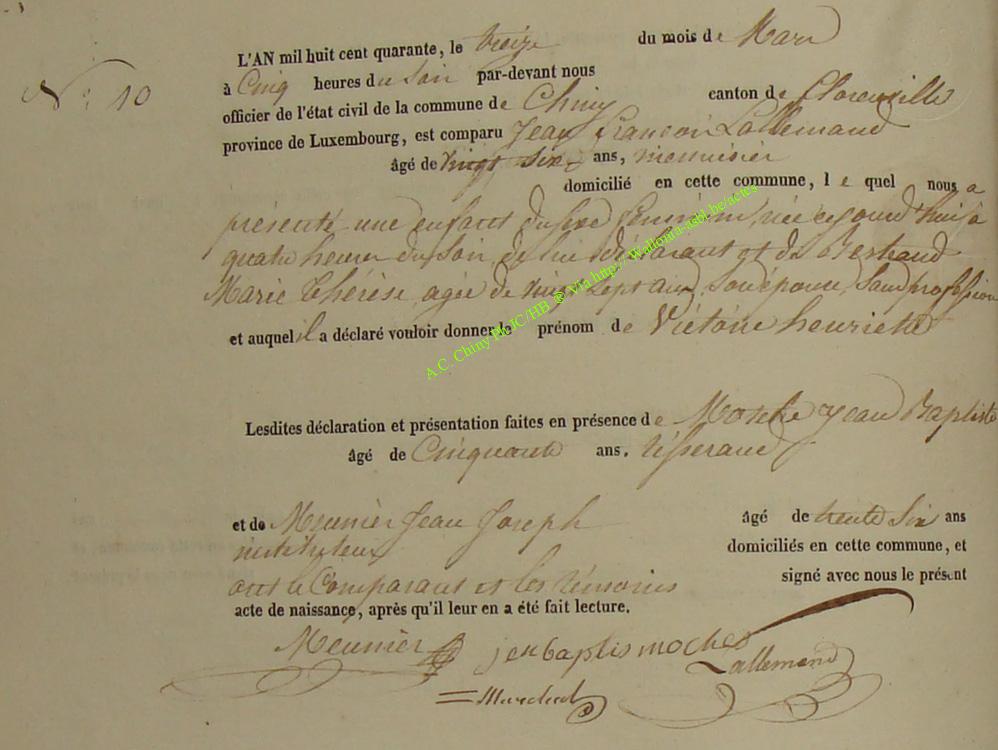 N° 10
L'AN mil huit cent quarante, le treize du mois de Mars
à Cinq heures du soir par-devant nous
officier de l'état civil de la commune de Chiny canton de Florenville
province de Luxembourg, est comparu Jean françois Lallemand
âgé de vingt six ans, menuisier
domicilié en cette commune, le quel nous a
présenté une enfant du sexe féminin, née cejourd'hui à
quatre heures du soir, de lui déclarant et de Bertrand
Marie Thérèse, agée de vingt sept ans, son épouse, sans profession
et auquel il a déclaré vouloir donner le prénom de Victoire henriette
Lesdites déclaration et présentation faites en présence de Jean Baptiste
âgé de Cinquante ans. tisserand
et de Meunier Jean Joseph âgé de trente Six ans
instituteur domiciliés en cette commune, et
ont le Comparant et les témoins signé avec nous le présent
acte de naissance, après qu'il leur en a été fait lecture.
Meunier Lallemand
A.C. Chiny Ph JC/HB ® via http://Wallonia-asbl.be/actes